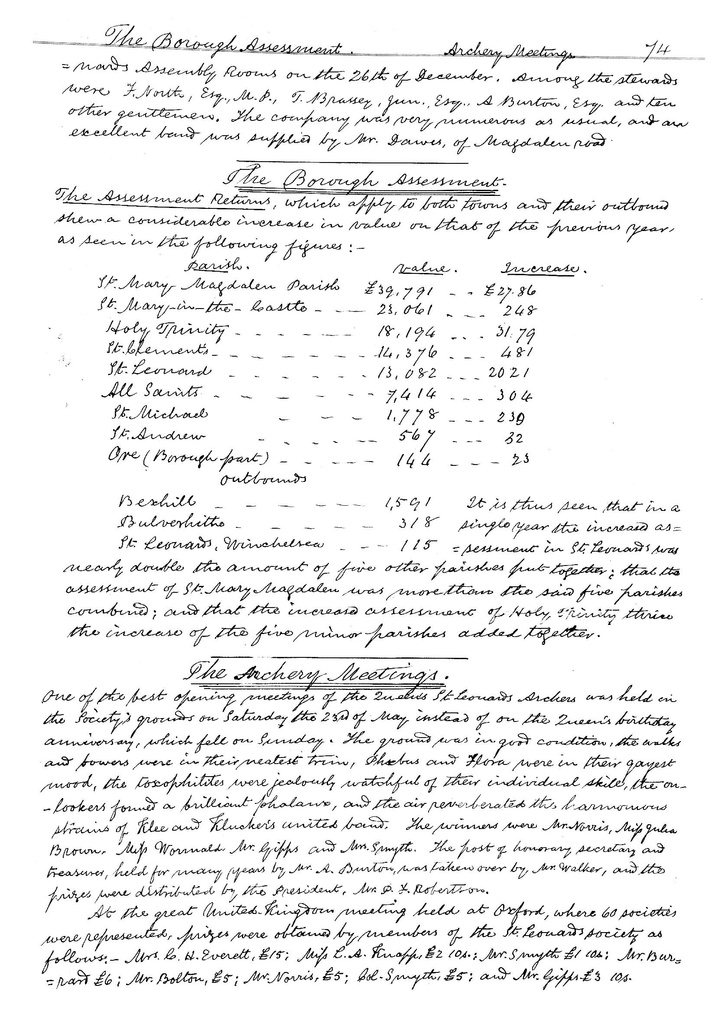 The Borough Assessment. Archery Meetings 74
=nards Assembly Rooms on the 26th of December. Among the stewards
were F. North, Esq., M.P., T. Brassey, Jun., Esq., A Burton, Esq. and ten
other gentlemen. The company was very numerous as usual, and an
excellent band was supplied by Mr. Dawes, of Magdalen road
The Borough Assessment.
The Assessment Returns, which apply to both towns and their outbound
shew a considerable increase in value on that of the previous year,
as seen in the following figures:-
Parish. Value. Increase.
St. Mary Magdalen Parish £39,791 - - £27.86
St. Mary-in-the-Castle - - - 23,061 - - - 248
Holy Trinity - - - - - 18,194 - - - 31.79
St. Clement's - - - - - 14,376 - - - 481
St. Leonard - - - - - 13,082 - - - 2021
All Saints - - - - - - 7,414 - - - 304
St. Michael - - - 1,778 - - - 239
St. Andrew - - - - - 567 - - - 32
Ore (Borough part) - - - - 144 - - - 23
outbounds
Bexhill - - - - - - 1,591 It is thus seen that in a
Bulverhithe - - - - - 318 single year the increased as=
St. Leonards, Winchelsea - - - 115 =sessment in St. Leonards was
nearly double the amount of five other parishes put together; that the
assessment of St. Mary Magdalen was more than the said five parishes
combined; and that the increased assessment of Holy Trinity thrice
the increase of the five minor parishes added together.
The Archery Meetings.
One of the best opening meetings of the Queen's St. Leonards Archers was held in
the Society's grounds on Saturday the 23rd of May instead of on the Queen's birthday
anniversary, which fell on Sunday. The ground was in good condition, the walks
and bowers were in their neatest trim, Phœbus and Flora were in their gayest
mood, the toxophilites were jealously watchful of their individual skill, the on-
-lookers formed a brilliant phalanx, and the air reverberated the harmonious
strains of Klee and Klucker's united band. The winners were Mr. Norris, Miss Julia
Brown, Miss Wormald Mr. Gipps and Mr. Smyth. The post of honorary secretary and
treasurer, held for many years by Mr. A. Burton, was taken over by Mr. Walker, and the
prizes were distributed by the President, Mr. P. F. Robertson.
At the great United-Kingdom meeting held at Oxford, where 60 societies
were represented, prizes were obtained by members of the St. Leonards society as
follows:- Mrs. C. H. Everett, £15; Miss L. A. Knapp £2 10s.; Mr. Smyth £1 10s; Mr. Bur=
=rard £6; Mr. Bolton, £5; Mr. Norris, £5; Col. Smyth, £5; and Mr. Gipps £3 10s.